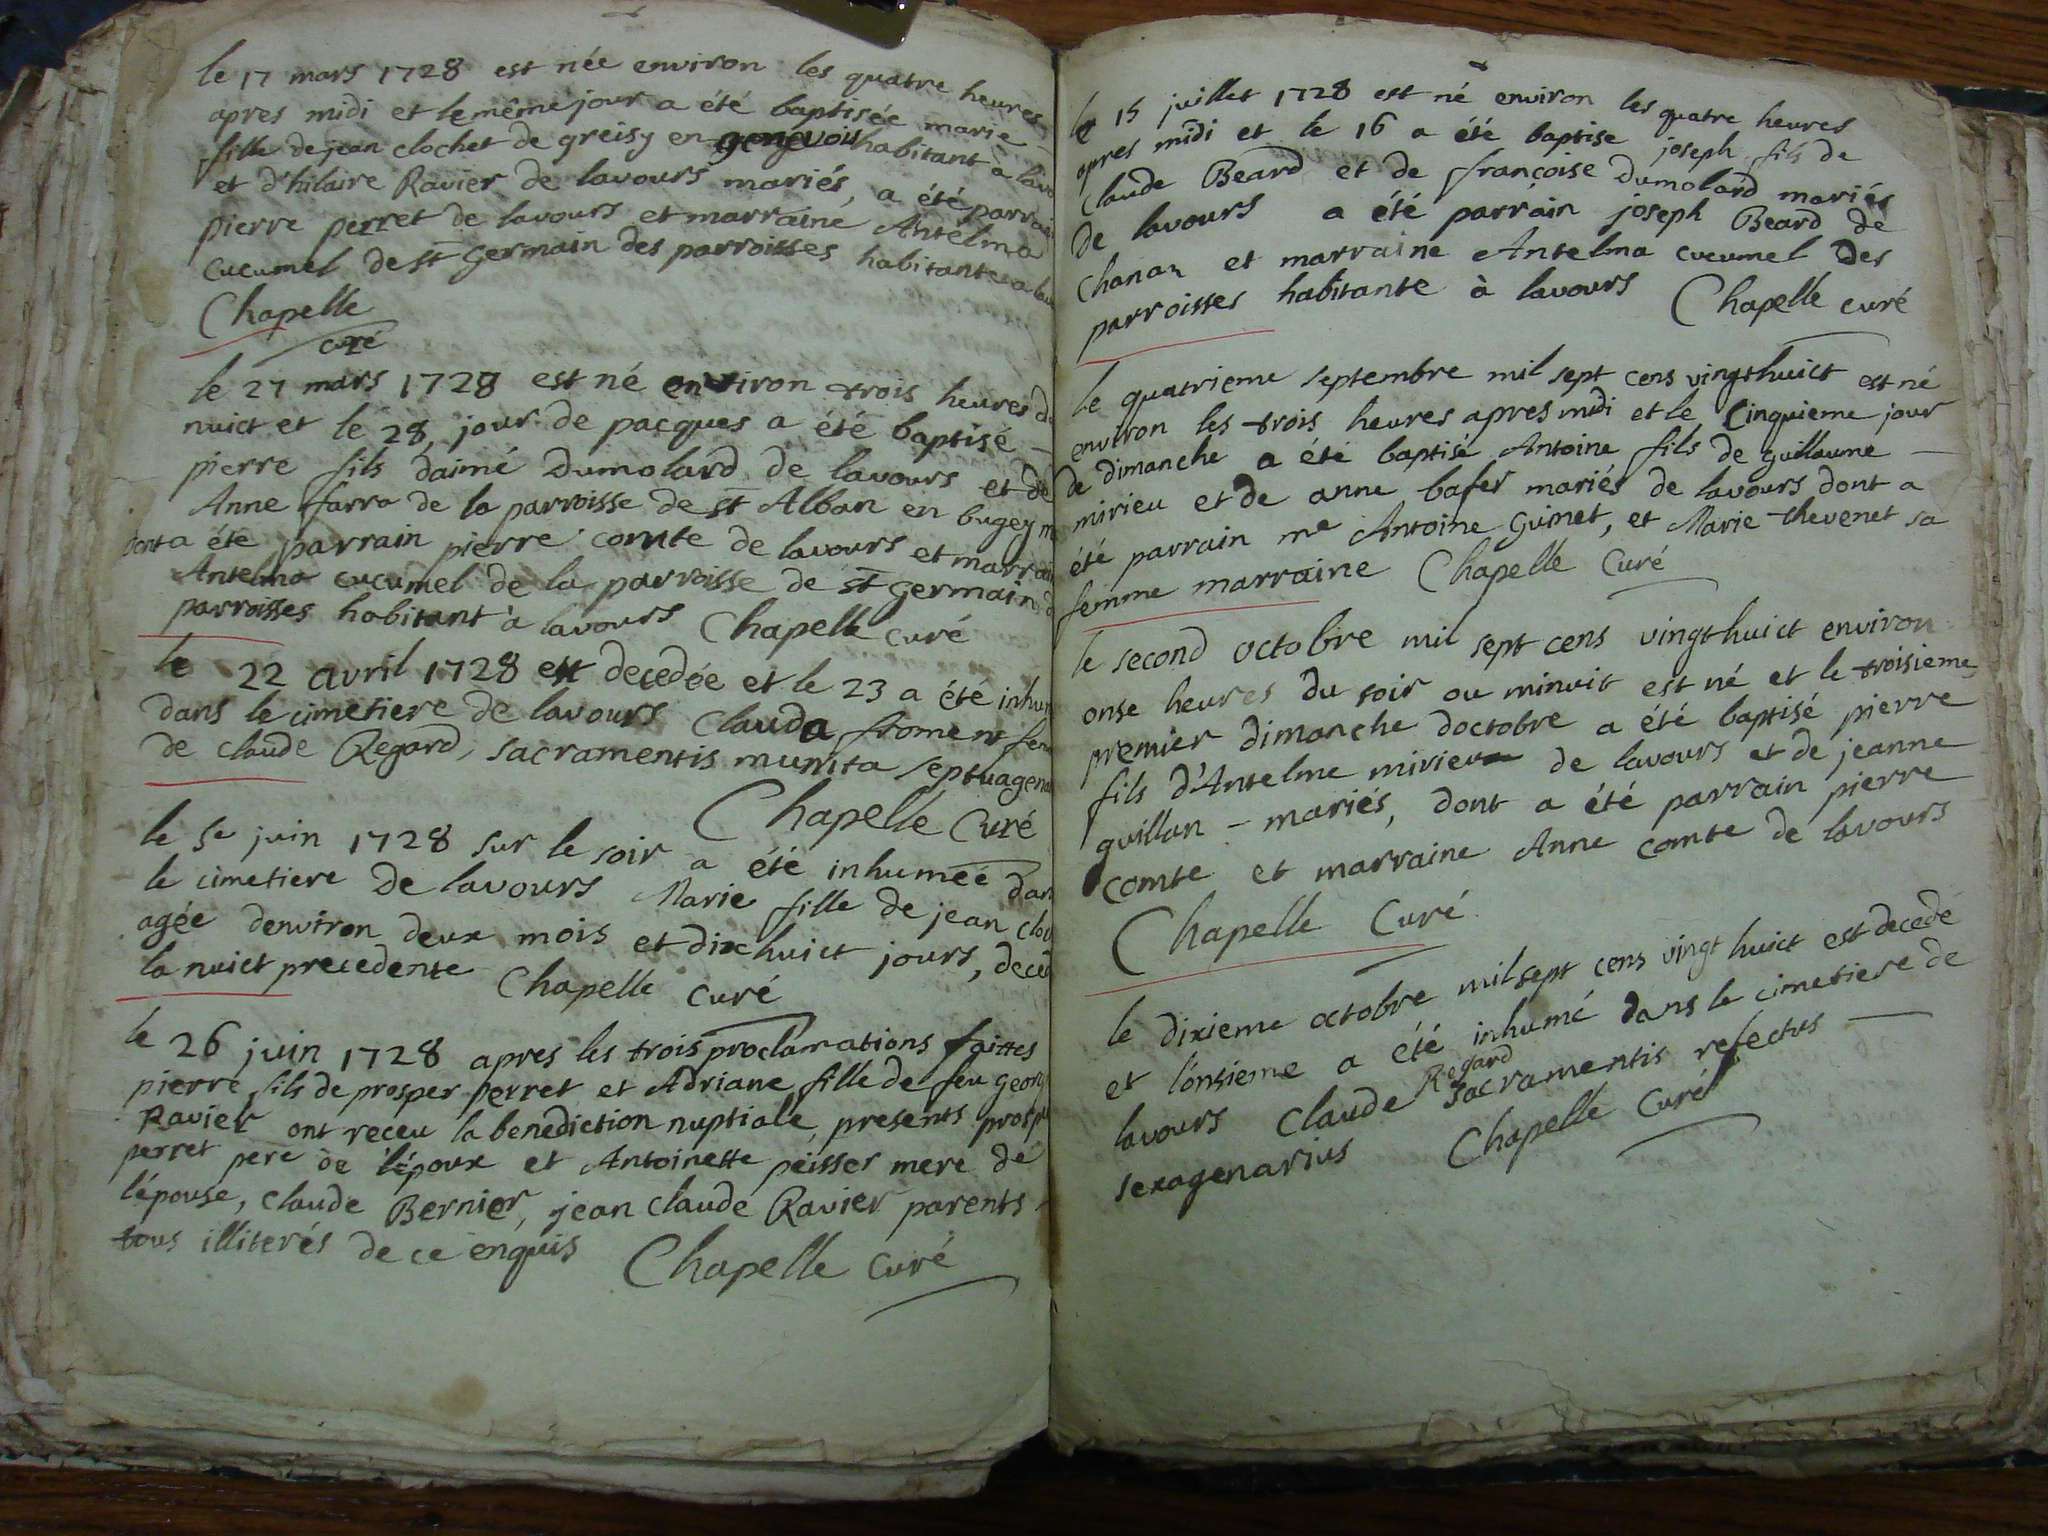 le 17 mars 1728 est née environ les quatre heures
apres midi et le même jour a été baptisée marie
fille de jean clochet de greisy en genevois habitant à lavo
et d'hilaire Ravier de lavours mariés, a été parrain
pierre perret de lavours et marraine Antelma
cucumel de st germain des parroisses habitante a lav
Chapelle
curé
le 27 mars 1728 est né environ trois heures de
nuict et le 28, jour de pacques a été baptisé
pierre fils daimé Dumolard de lavours et de
Anne farra de la parroisse de st Alban en bugey m
dont a été parrain pierre comte de lavours et marrain
Antelma cucumel de la parroisse de st germain d
parroisses habitant à lavours Chapelle curé
le 22 avril 1728 est decedée et le 23 a été inhum
dans le cimetiere de lavours Clauda froment fem
de claude Regard, sacramentis munita septuagena
Chapelle Curé
le 5e juin 1728 sur le soir a été inhumée dan
le cimetiere de lavours Marie fille de jean cloc
agée denviron deux mois et dixhuict jours, deced
la nuict precedente Chapelle curé
le 26 juin 1728 apres les trois proclamations faittes
pierre fils de prosper perret et Adriane fille de feu georg
Ravier ont receu la benediction nuptiale, presents prosp
perret pere de l'époux et Antoinette peisser mere de
l'épouse, claude Bernier, jean claude Ravier parents
tous illiterés de ce enquis Chapelle curé
le 15 juillet 1728 est né environ les quatre heures
apres midi et le 16 a été baptise joseph fils de
Claude Beard et de françoise Dumolard mariés
de lavours a été parrain joseph Beard de
Chanaz et marraine Antelma cucumel des
parroisses habitante à lavours Chapelle curé
le quatrieme septembre mil sept cens vingthuict est né
environ les trois heures apres midi et le cinquieme jour
de dimanche a été baptisé Antoine fils de guillaume
mirieu et de anne bafer mariés de lavours dont a
été parrain me Antoine Guinet, et Marie thevenet sa
femme marraine Chapelle Curé
le second octobre mil sept cens vingthuict environ
onse heures du soir ou minuit est né et le troisieme
premier dimanche doctobre a été baptisé pierre
fils d'Antelme mirieu de lavours et de jeanne
guillan - mariés, dont a été parrain pierre
comte et marraine Anne comte de lavours
Chapelle Curé
le dixieme octobre mil sept cens vingt huict est decedé
et l'onsieme a été inhumé dans le cimetiere de
lavours Claude Regard sacramentis refectus
sexagenarius Chapelle Curé